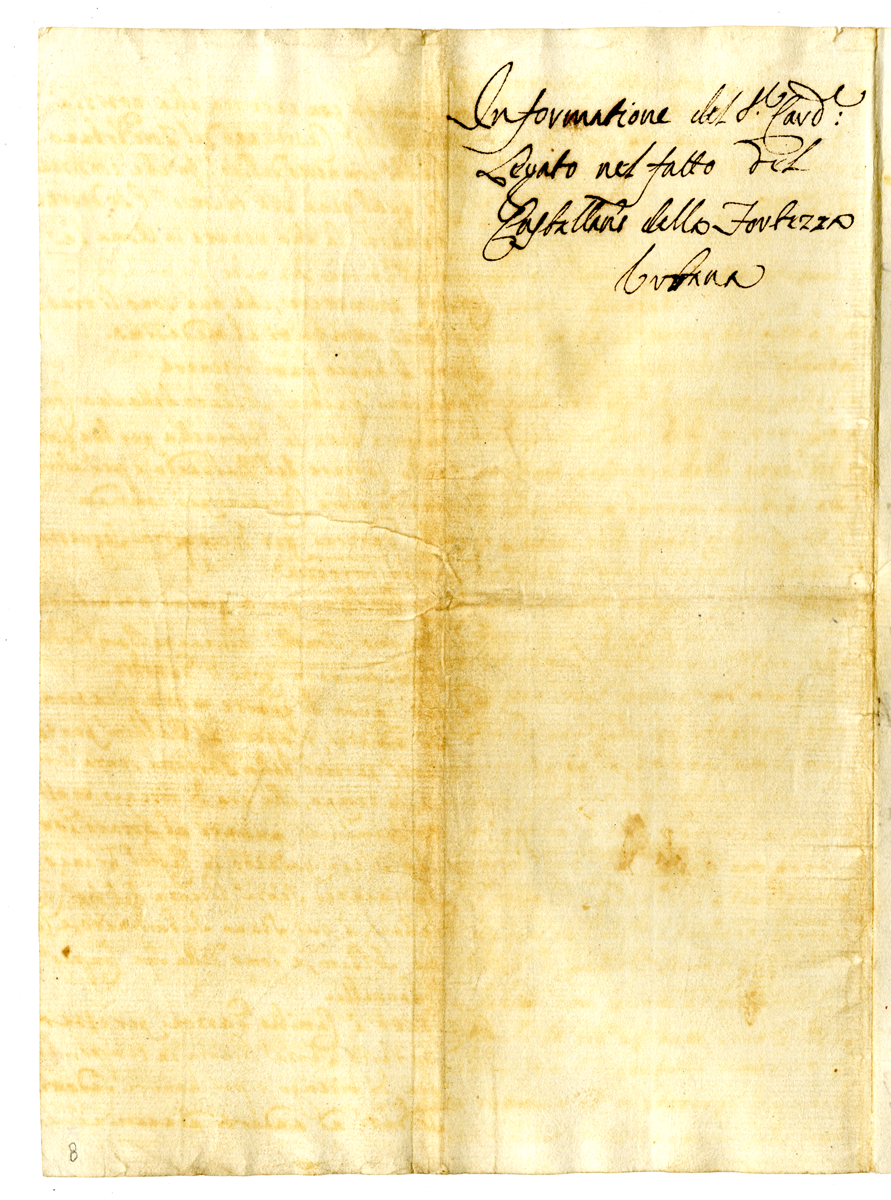 Informatione del S.r Card.l:
Legato nel fatto del
Castellano della Fortezza
Urbana
8